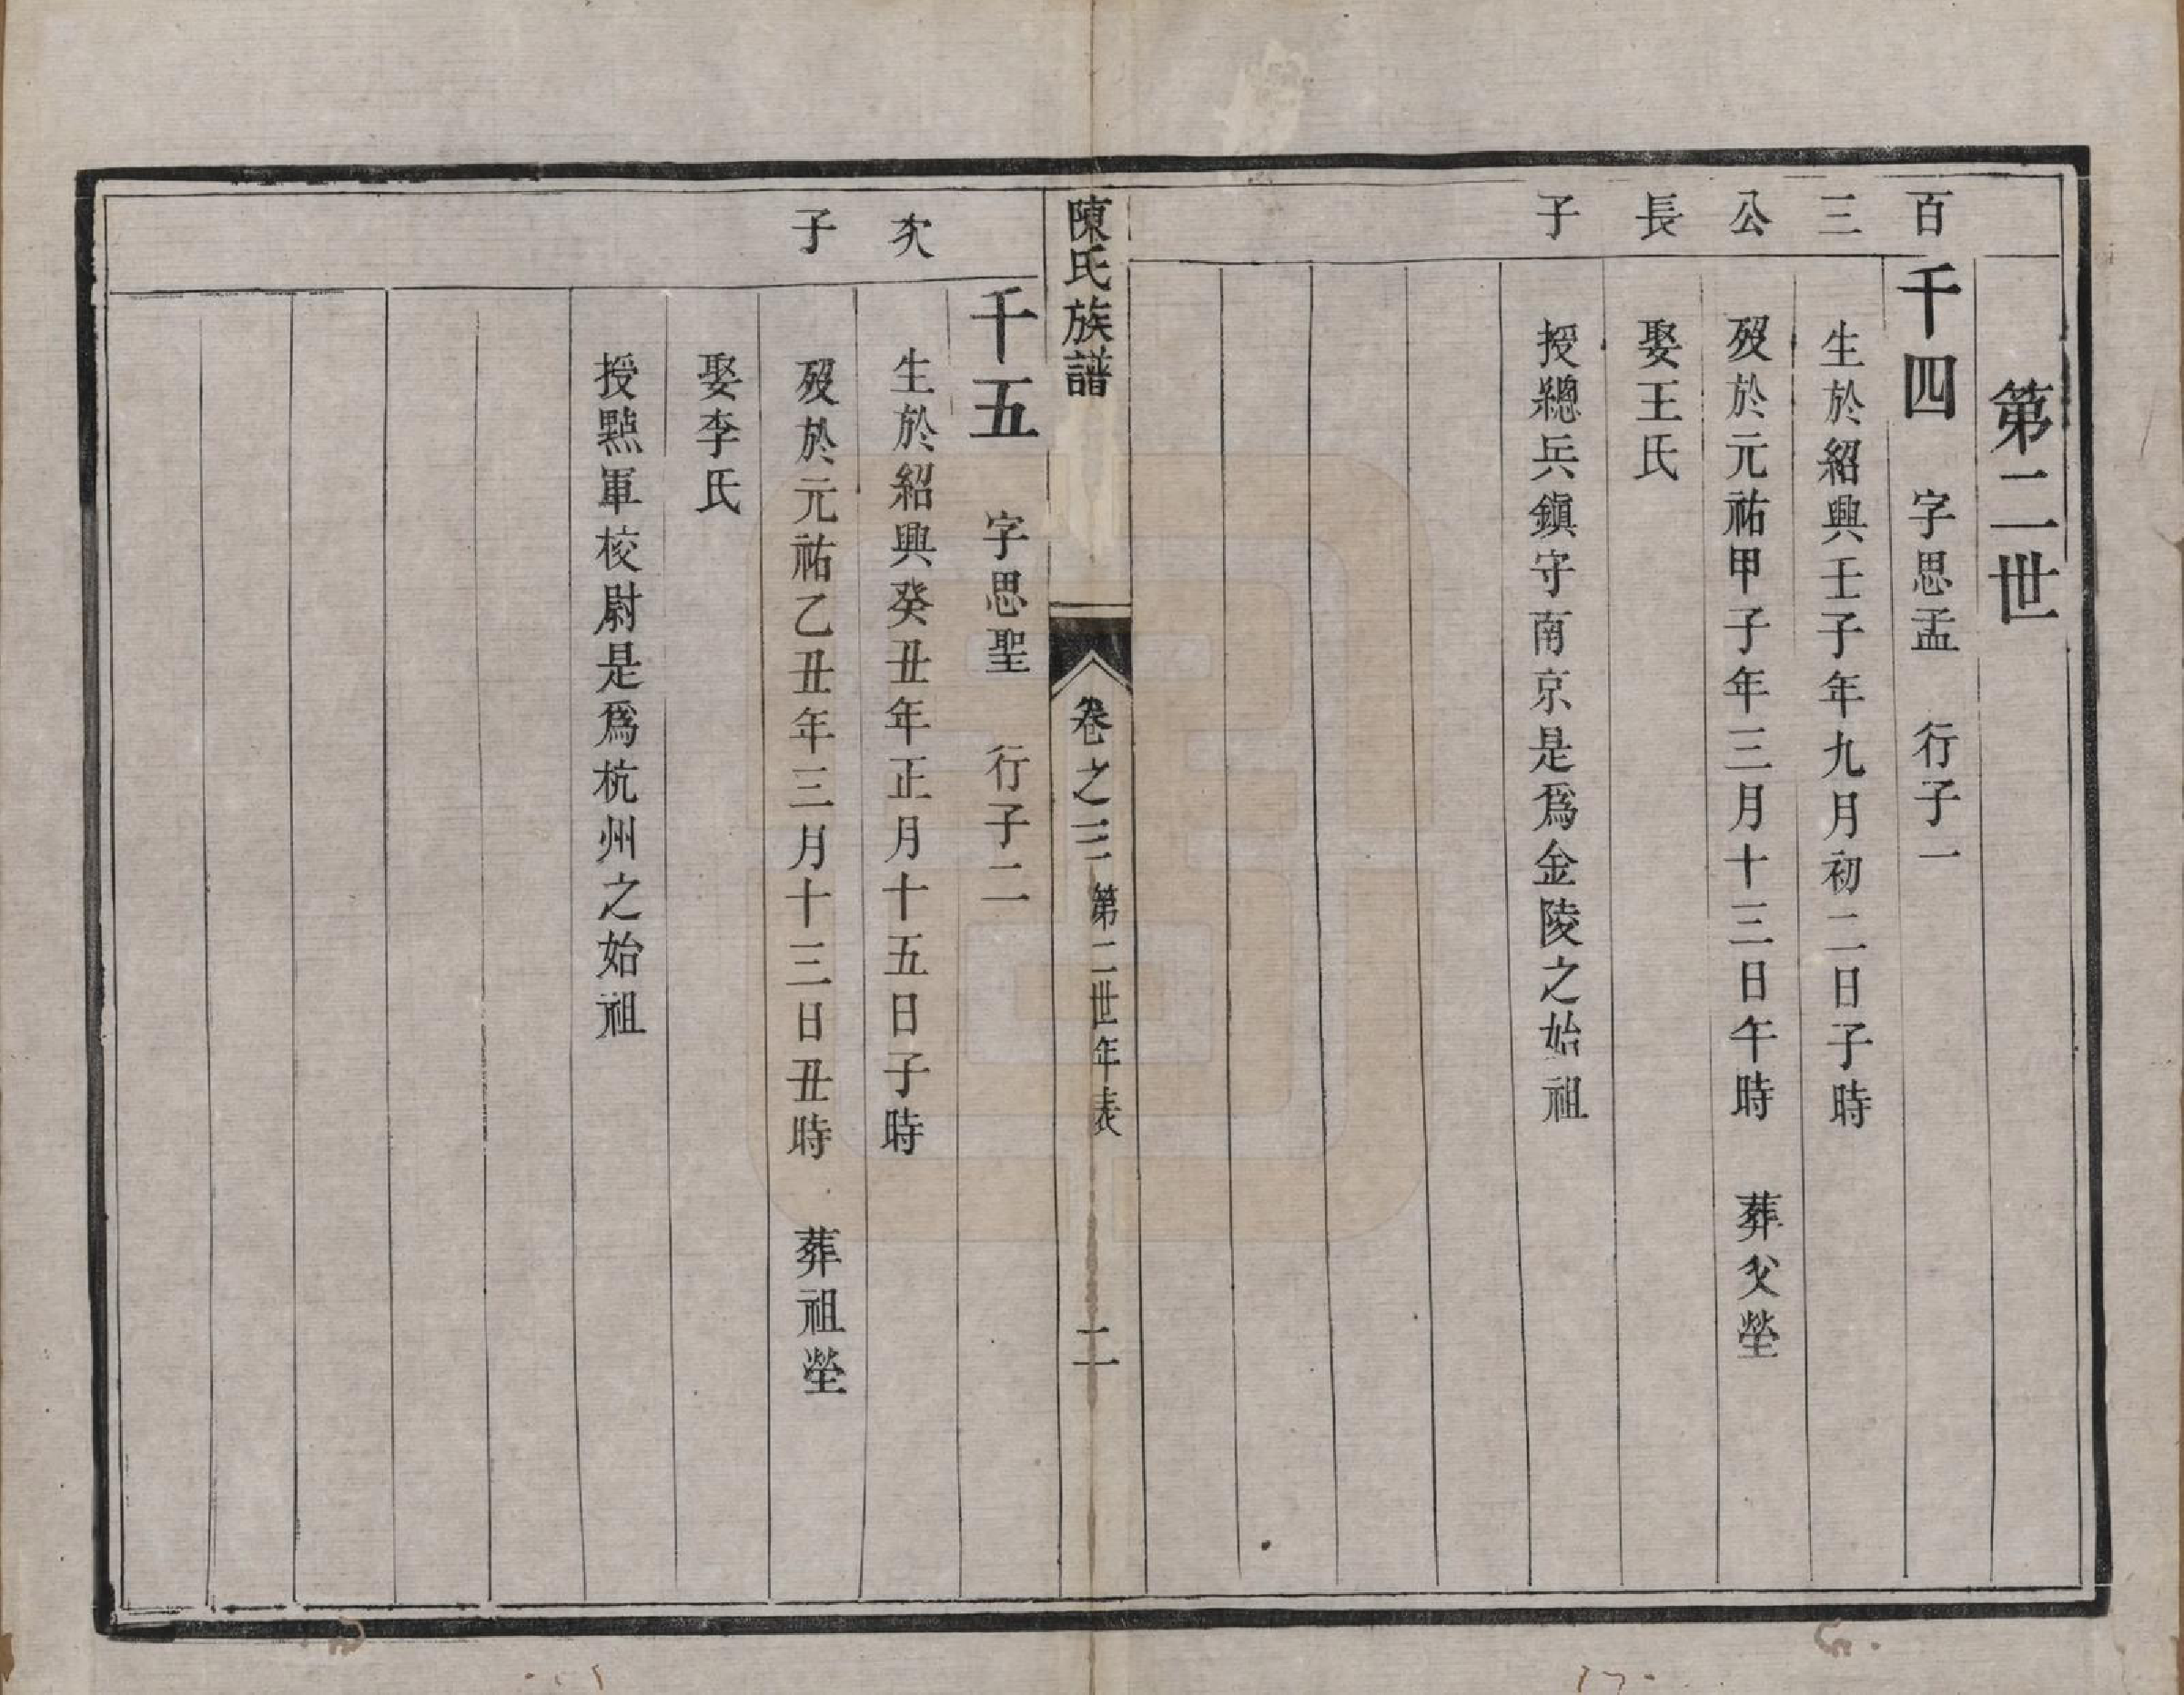 第二世
百三公長子
千四　字思孟　行子一
生於紹興壬子年九月初二日子時
歿於元祐甲子年三月十三日午時　葬父塋
娶王氏
授總兵鎭守南京是爲金陵之始祖
陳氏族譜　卷之三　第二世年表　二
次子
千五　字思聖　行子二
生於紹興癸丑年正月十五日子時
歿於元祐乙丑年三月十三日丑時　葬祖塋
娶李氏
授㸃軍校尉是爲杭州之始祖